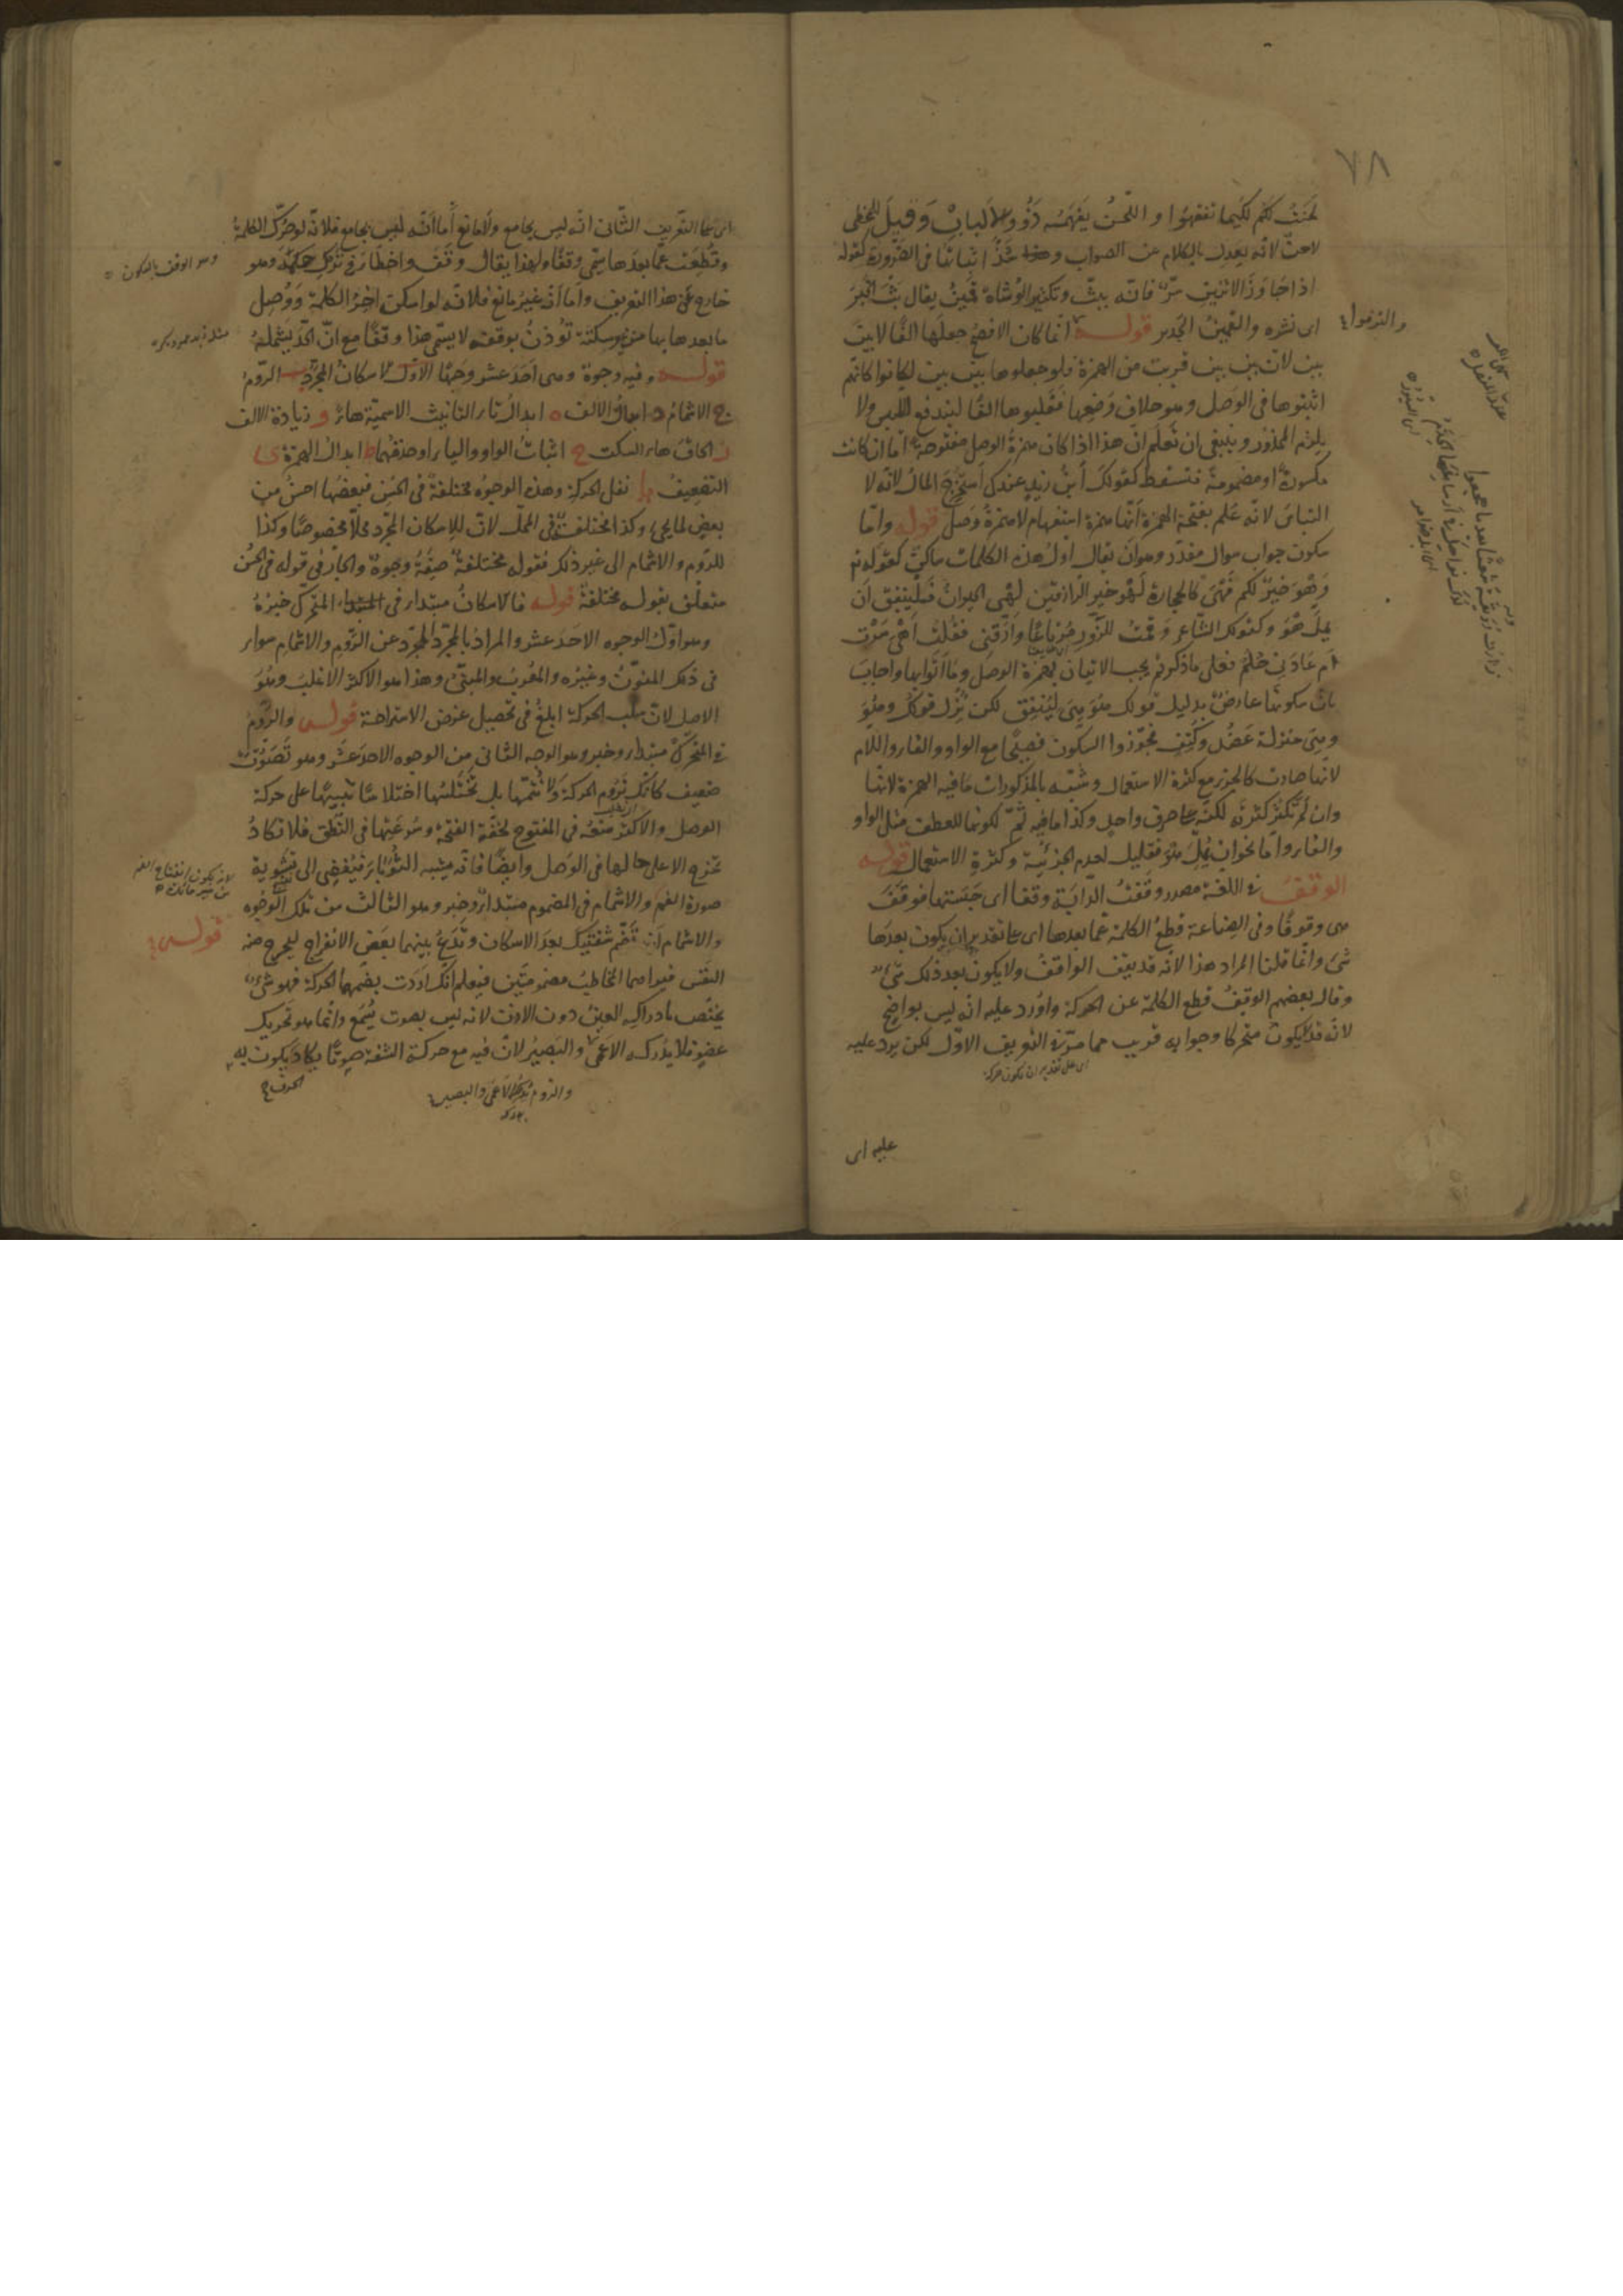 ٧٨
لحنت لكم لكيما تفقهوا واللحن يفهمه ذوو الالباب وقيل للمخطى
لاحن لانه يعدل بالكلام عن الصواب وهذا شذ اثباتها فى الضرورة كقوله
اذا جاوز الاثنين سر فانه ببث وتكثير الوشاة قمين يقال بث الخبر
اى نشره والقمين الجدير قوله انما كان الافصح جعلها الفا لا بين
بين لان بين بين قريب من الهمزة فلو جعلوها بين بين لكانوا كانهم
اثبتوها فى الوصل وهو خلاف وضعها فقلبوها الفا ليندفع اللبس ولا
يلزم المحذور وينبغى ان تعلم ان هذا اذا كان همزة الوصل مفتوحة اما ان كانت
مكسورة او مضمومة فتسقط كقولك أبن زيد عندك أستخرج المال لانه لا
التباس لانه علم بفتحة الهمزة انها همزة استفهام لا همزة وصل قوله واما
سكون جواب سوال مقدر وهو ان يقال اول هذه الكلمات ساكن كقوله تع
وهو خير لكم فهى كالحجارة لهو خير الرازقين لهى الحيوان فلينفق ان
يمل هو وكقول الشاعر وقمت للزور مرتاعا وارقنى فقلت اهى سرت
ام عادنى حلم فعلى ما ذكرتم يجب الاتيان بهمزة الوصل وما اتوا بها واجاب
بان سكونها عارض بدليل قولك هو هى لينفق لكن نزل قولك وهو
وهى منزلة عضد وكتف فجوزوا السكون فصيحا مع الواو والفاء واللام
لانها صارت كالجزء مع كثرة الاستعمال وشبه بالمذكورات ما فيه الهمزة لانها
وان لم تكثر كثرته لكنه على حرف واحد وكذا ما فيه ثم لكونها للعطف مثل الواو
والفاء واما نحو ان يمل هو فقليل لعدم الجزئية وكثرة الاستعمال قوله
الوقف فى اللغة مصدر وقفت الدابة وقفا اى حبستها فوقفت
هى وقوفا وفى الصناعة قطع الكلمة عما بعدها اى على تقدير ان يكون بعدها
شئ وانما قلنا المراد هذا لانه قد يقف الواقف ولا يكون بعد ذلك شئ
وقال بعضهم الوقف قطع الكلمة عن الحركة واورد عليه انه ليس بواضح
لانه قد لا يكون متحركا وجوابه قريب مما مر فى التعريف الاول لكن يرد عليه
اى على تقدير ان يكون حركة
عليه اى
والتزموا
اى على التعريف الثانى انه ليس بجامع ولا مانع اما انه ليس بجامع فلانه لو حرك الكلمة
وقطعت عما بعدها سمى وقفا ولهذا يقال وقف واخطأ فى ترك حكمه وهو
خارج عن هذا التعريف واما انه غير مانع فلانه لو اسكن اخر الكلمة ووصل
ما بعدها بها من غير سكتة تؤذن بوقفه لا يسمى هذا وقفا مع ان الحد يشمله
قوله وفيه وجوه وهى احد عشر وجها الاول الاسكان المجرد ب الروم
ج الاشمام د ابدال الالف ه ابدال تاء التانيث الاسمية هاء و زيادة الالف
ز الحاق هاء السكت ح اثبات الواو والياء او حذفهما ط ابدال الهمزة ى
التضعيف يا نقل الحركة وهذه الوجوه مختلفة فى الحسن فبعضها احسن من
بعض لما يجئ وكذا مختلفة فى المحل لان للاسكان المجرد محلا مخصوصا وكذا
للروم والاشمام الى غير ذلك فقوله مختلفة صفة وجوه والجار فى قوله فى الحسن
متعلق بقوله مختلفة قوله فالاسكان مبتداء فى المتحرك خبره
وهو اول الوجوه الاحد عشر والمراد بالمجرد المجرد عن الروم والاشمام سواء
فى ذلك المنون وغيره والمعرب والمبنى وهذا هو الاكثر الاغلب وهو
الاصل لان سلب الحركة ابلغ فى تحصيل غرض الاستراحة قوله والروم
فى المتحرك مبتداء وخبر وهو الوجه الثانى من الوجوه الاحد عشر وهو تصويت
ضعيف كانك تروم الحركة ولا تتمها بل تختلسها اختلاسا تنبيها على حركة
الوصل والاكثر منعه فى المفتوح لخفة الفتحة وسرعتها فى النطق فلا تكاد
تخرج الا على حالها فى الوصل وايضا فانه يشبه الثؤباء فيفضى الى تشوية
صورة الفم والاشمام فى المضموم مبتداء وخبر وهو الثالث من تلك الوجوه
والاشمام ان تضم شفتيك بعد الاسكان وتدع بينهما بعض الانفراج ليخرج منه
النفس فيراهما المخاطب مضمومتين فيعلم انك اردت بضمهما الحركة فهو شئ
يختص بادراكه العين دون الاذن لانه ليس بصوت يسمع وانما هو تحريك
عضو فلا يدركه الاعمى والبصير لان فيه مع حركة الشفة صوتا يكاد يكون به
الحرف
والروم يدركه الاعمى والبصير
وهو الوقف بالسكون
قوله